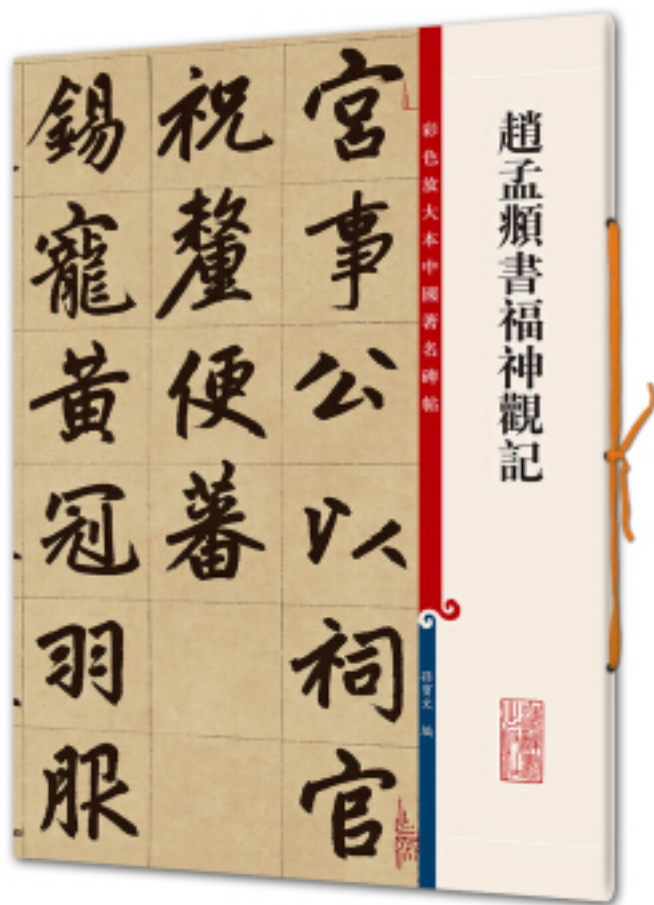 趙孟頫書福神觀記
彩色放大本中國著名碑帖
孫寶文 編
宮事公以祠官
祝釐便蕃
錫寵黃冠羽服